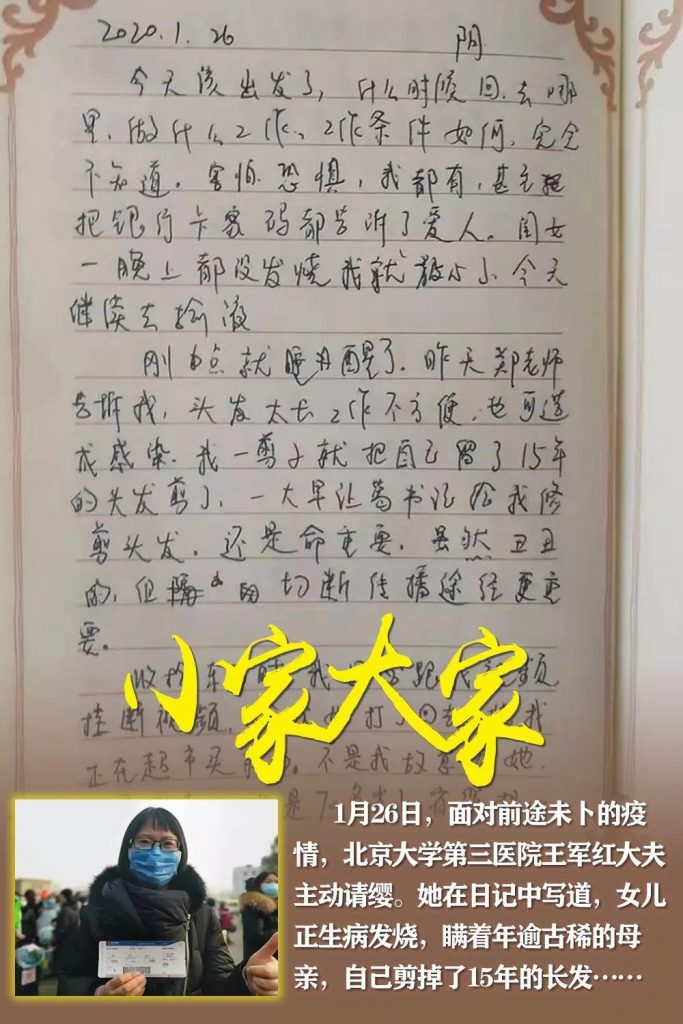 2020.1.26 阴
今天该出发了，什么时候回，去哪
里，做什么工作，工作条件如何，完全
不知道。害怕恐惧，我都有，甚至
把银行卡密码都告诉了爱人。闺女
一晚上都没发烧我就放心了，今天
继续去输液
刚 点就睡不醒了。昨天郑老师
告诉我，头发太长工作不方便，也可造
成感染。我一剪子就把自己留了15年
的头发剪了，一大早让葛书记给我修
剪头发，还是命重要。虽然丑丑
的，但 切断传播途径更重
要。
收拾东 我 跟我视频
挂断视频， 打了回 我
正在超市买 。不是我故 她，
是7
小家大家
1月26日，面对前途未卜的疫
情，北京大学第三医院王军红大夫
主动请缨。她在日记中写道，女儿
正生病发烧，瞒着年逾古稀的母
亲，自己剪掉了15年的长发……